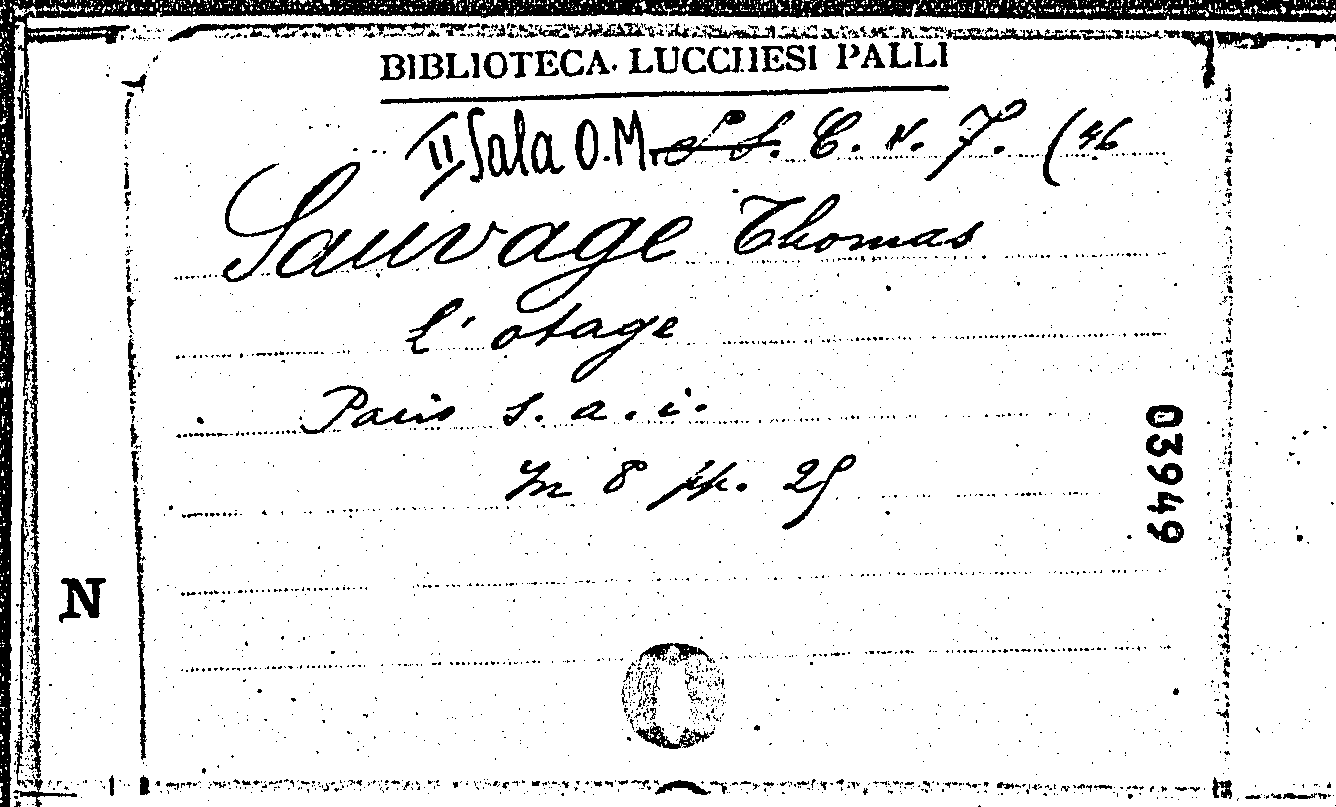 BIBLIOTECA LUCCHESI PALLI
II Sala O.M. S. S. C. N. 7. (46
Sauvage Thomas
L'otage
Paris s. a. i.
In 8 pp. 25
03949
N